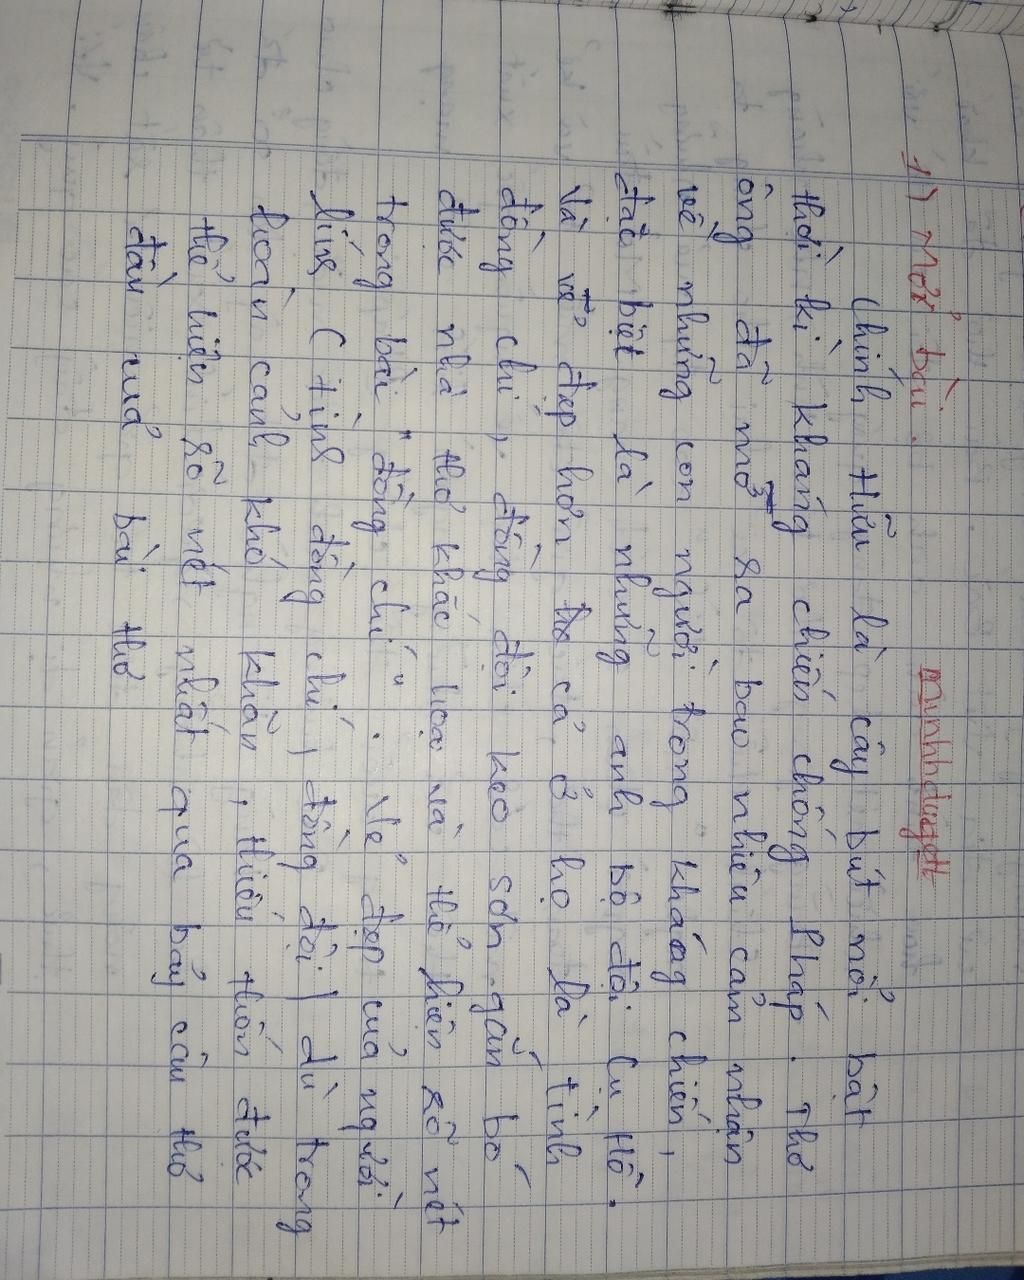 minhhduyett
1) Mở bài.
Chính Hữu là cây bút nổi bật
thời kì kháng chiến chống Pháp. Thơ
ông đã mở ra bao nhiêu cảm nhận
về những con người trong kháng chiến,
đặc biệt là những anh bộ đội Cụ Hồ.
Và vẻ đẹp hơn cả ở họ là tình
đồng chí, đồng đội keo sơn gắn bó
được nhà thơ khắc hoạ và thể hiện rõ nét
trong bài "đồng chí". Vẻ đẹp của người
lính (tình đồng chí, đồng đội) dù trong
hoàn cảnh khó khăn, thiếu thốn được
thể hiện rõ nét nhất qua bảy câu thơ
đầu của bài thơ